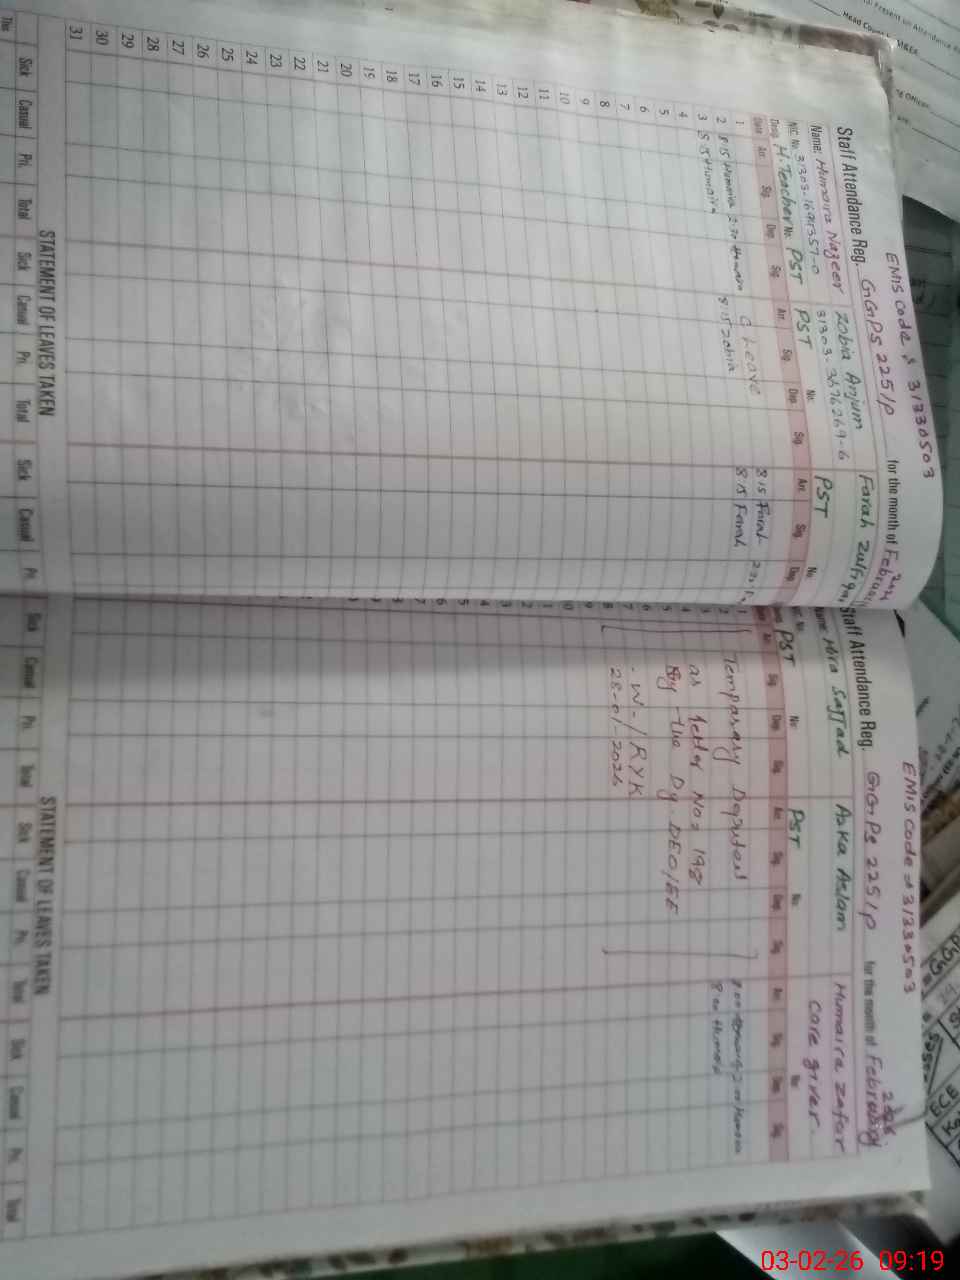 EMIS Code : 31330503
Staff Attendance Reg. GGPS 225/P for the month of February 2026
Name: Humaira Nazeer Zobia Anjum Farah Zulfiqar
NIC No. 31303-1694357-0 31303-3696269-6
Desig. H. Teacher No. PST PST No. PST No.
Date Arr. Sig. Dep. Sig. Arr. Sig. Dep. Sig. Arr. Sig. Dep.
1
2 8 15 Humaira 2 30 Humaira C Leave 8 15 Farah
3 8 15 Humaira 8 15 Zobia 8 15 Farah
4
5
6
7
8
9
10
11
12
13
14
15
16
17
18
19
20
21
22
23
24
25
26
27
28
29
30
31
STATEMENT OF LEAVES TAKEN
Sick Casual Pri. Total Sick Casual Pri. Total Sick Casual Pri.
This
EMIS Code # 31330503
Staff Attendance Reg. GGPS 225/P for the month of February 2026.
Name Hira Sajjad Azka Aslam Humaira Zafar
Care giver.
PST No. PST No. No.
Arr. Sig. Dep. Sig. Arr. Sig. Dep. Sig. Arr. Sig. Dep. Sig.
Tempasary Deputed
as letter No: 198
By the Dy. DEO/EE
W-/RYK
28-01-2026
8 00 Humaira
STATEMENT OF LEAVES TAKEN
Sick Casual Pri. Total Sick Casual Pri. Total Sick Casual Pri. Total
Present on Attendance
Head Count
GGP
ECE
03-02-26 09:19